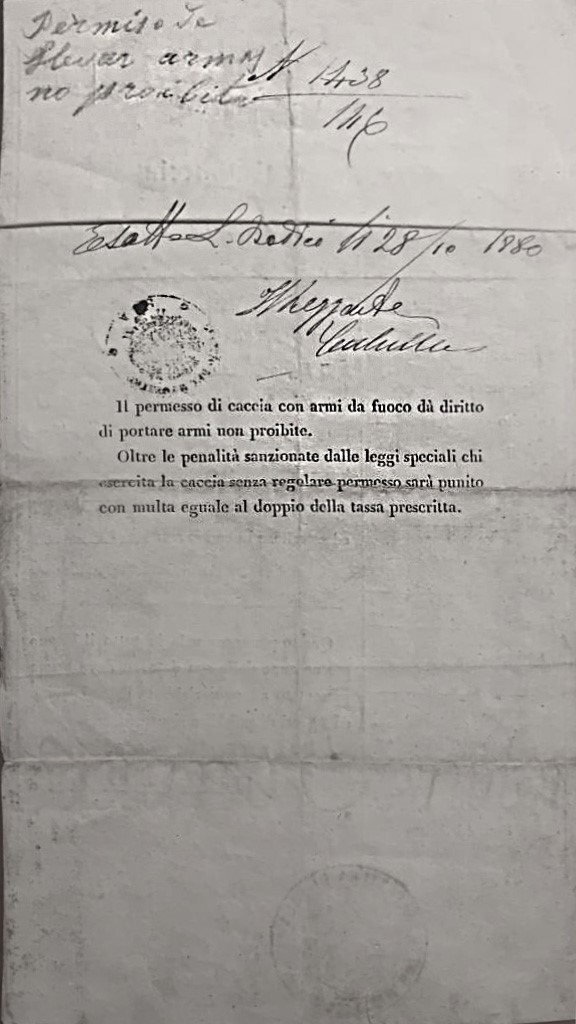 Permiso de
llevar armas
no proibite
N 1438
116
Esatto L. Dodici li 28/10 1880
Il permesso di caccia con armi da fuoco dà diritto
di portare armi non proibite.
Oltre le penalità sanzionate dalle leggi speciali chi
esercita la caccia senza regolare permesso sarà punito
con multa eguale al doppio della tassa prescritta.